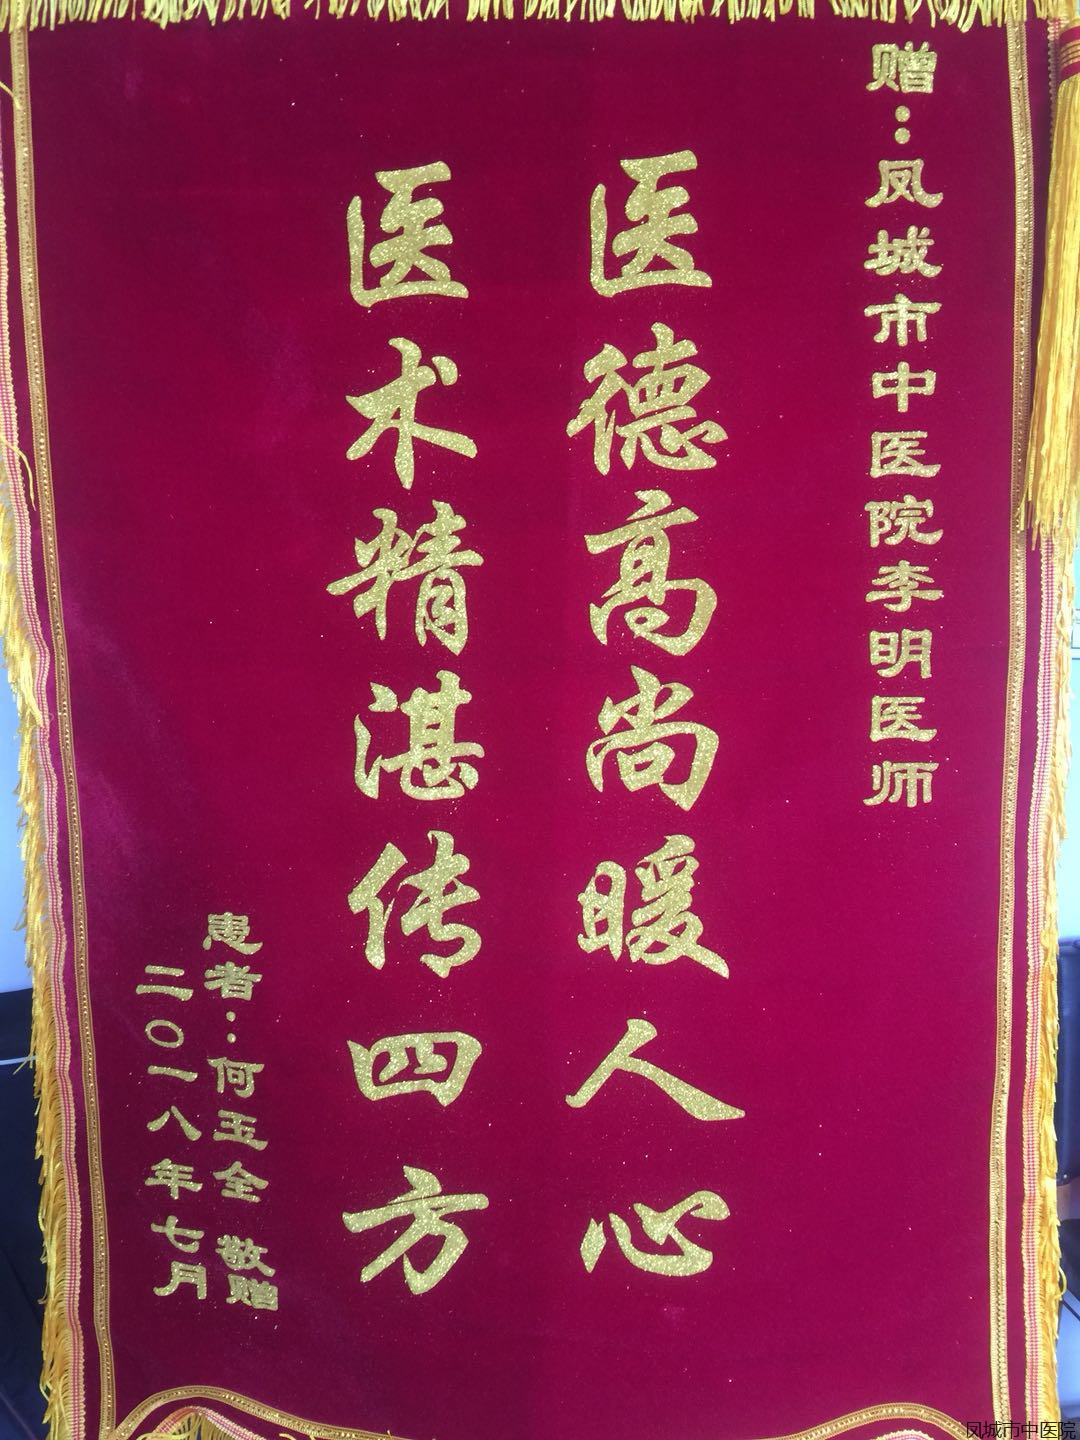 赠：凤城市中医院李明医师
医德高尚暖人心
医术精湛传四方
患者：何玉全 敬赠
二〇一八年七月
凤城市中医院